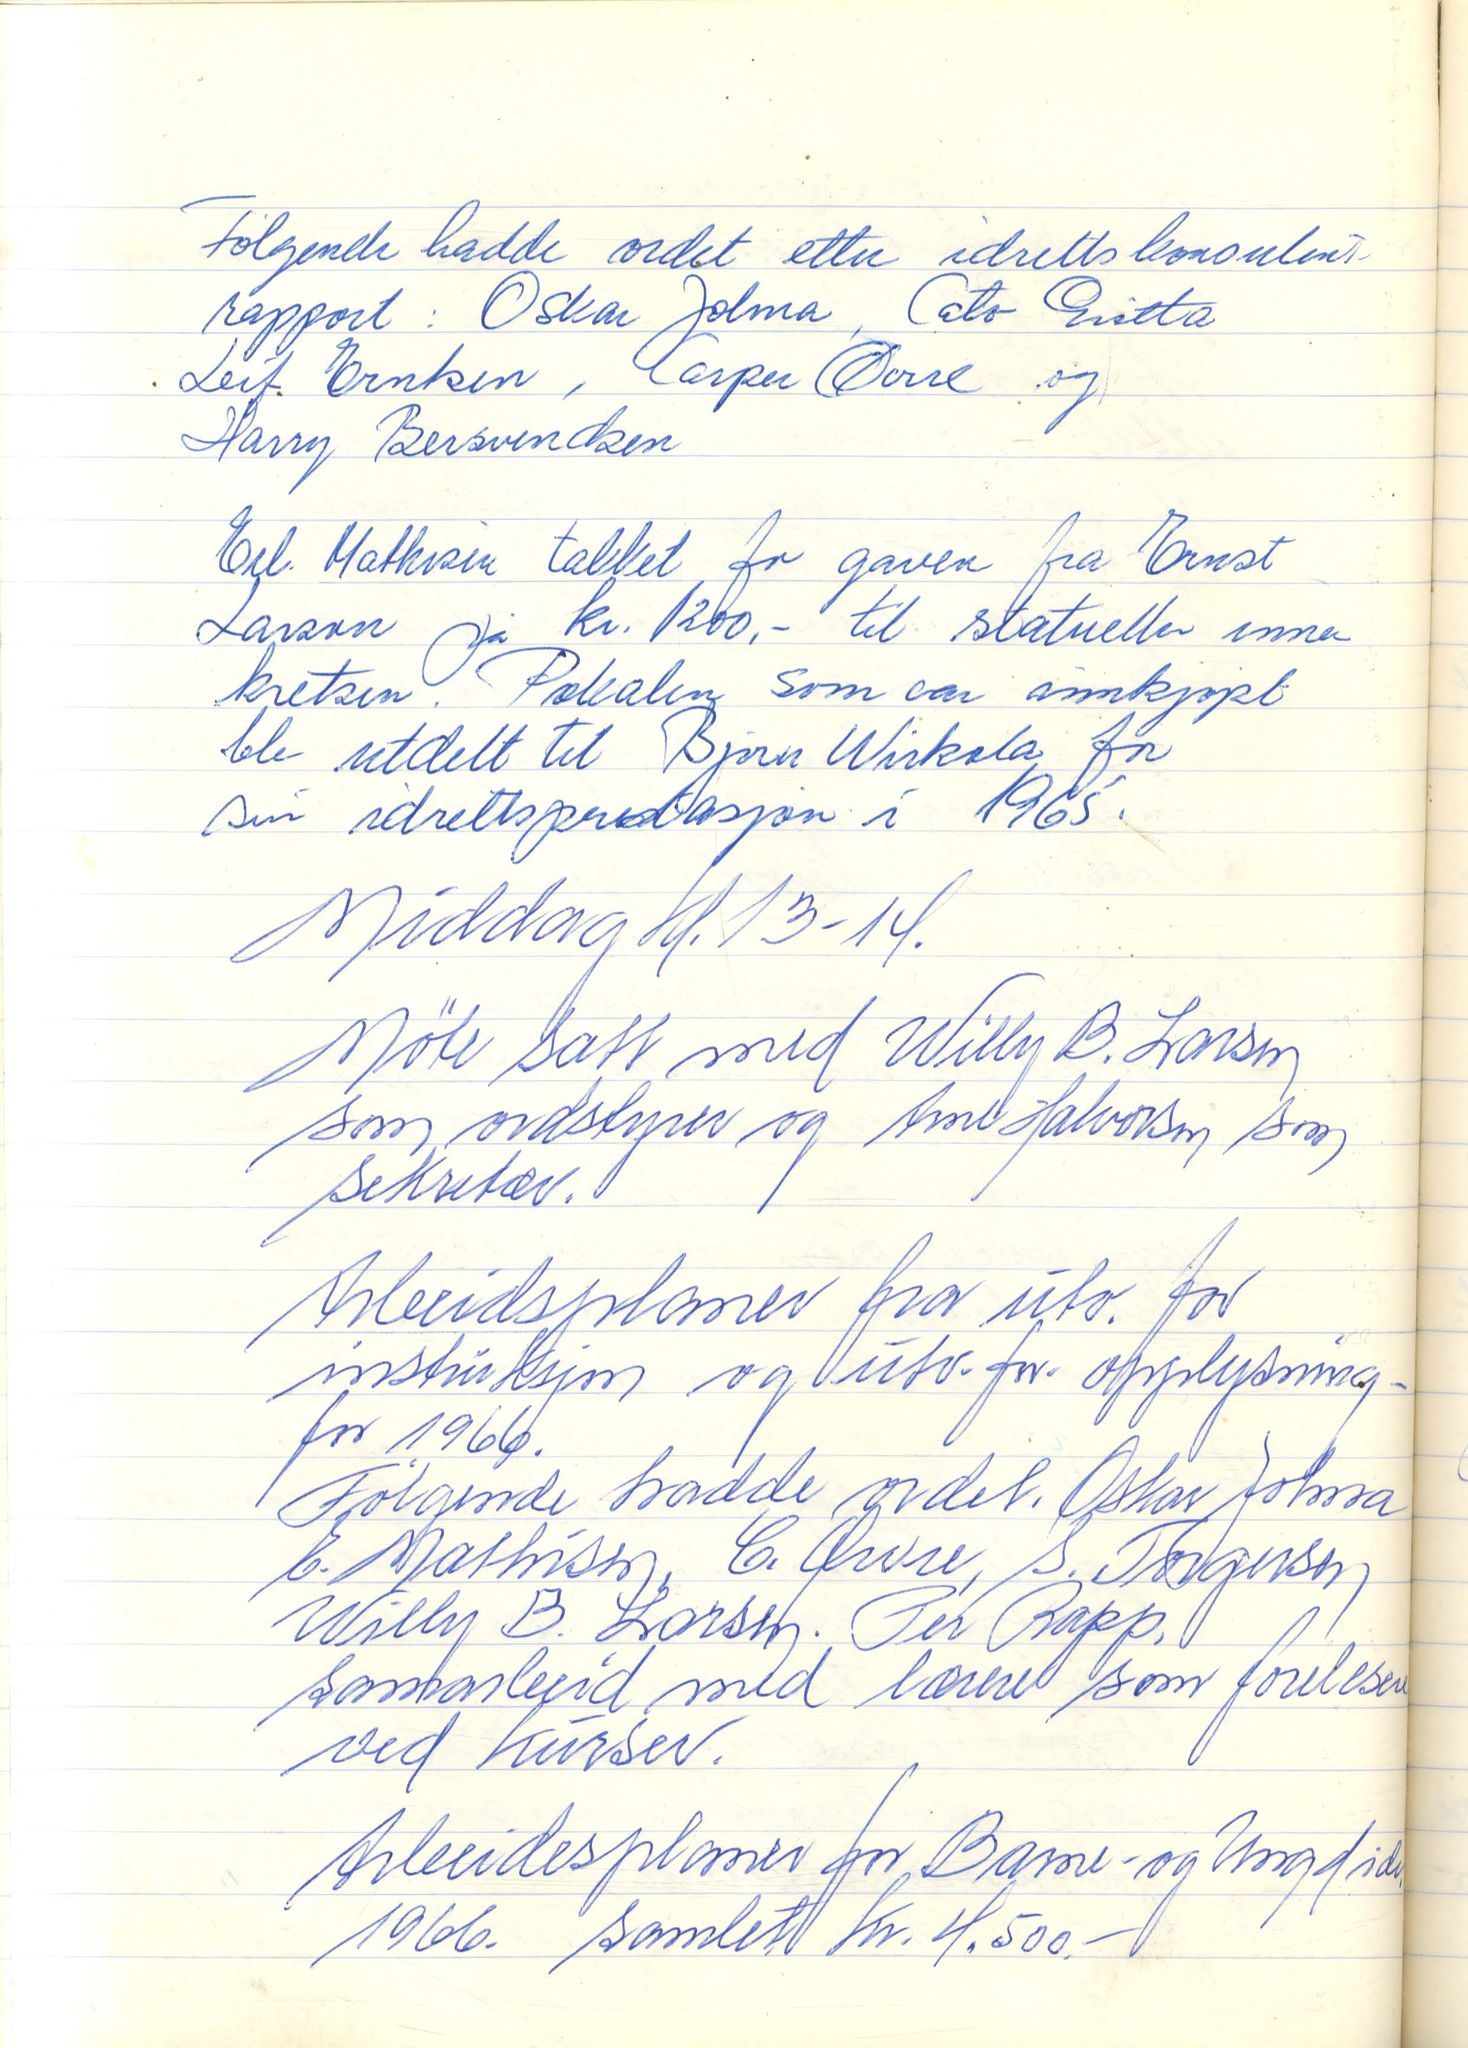 Følgende hadde ordet etter idrettskonsulent-
rapport: Oskar Jolma, Cato
Leif Ernksen, Casper Øvre og
Harry Bersvendsen
Erl. Mathisen takket for gaven fra Ernst
Larsen på kr. 1200,- til statuetter innen
kretsen. Pokalen som var innkjøpt
ble utdelt til Bjørn Wirkola for
sin idrettsprestasjon i 1965.
Middag kl. 13-14.
Möte satt med Willy B. Larsen
som ordstyrer og Arne Halvorsen som
sekretær.
Arbeidsplaner fra utv. for
instruksjon og utv. for opplysning-
for 1966.
Følgende hadde ordet. Oskar Jolma
E. Mathisen, C. Øvre, S. Torgersen
Willy B. Larsen. Per Rapp.
samarbeid med lærere som forelesere
ved kurser.
Arbeidesplaner for Barne- og Ungd.idr.
1966. samlet kr. 4.500.-